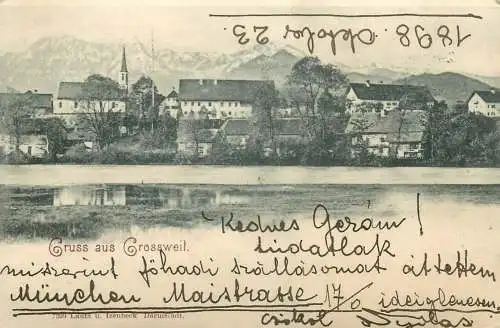 1898. Oktober 23.
Gruss aus Grossweil.
"Kedves Geram!
tudatlak
miszerint jöhadi szállásomat áttettem
München Maistrasse 17/0 ideiglenesen
7399 Lautz u. Isenbeck Darmstadt.
csókol